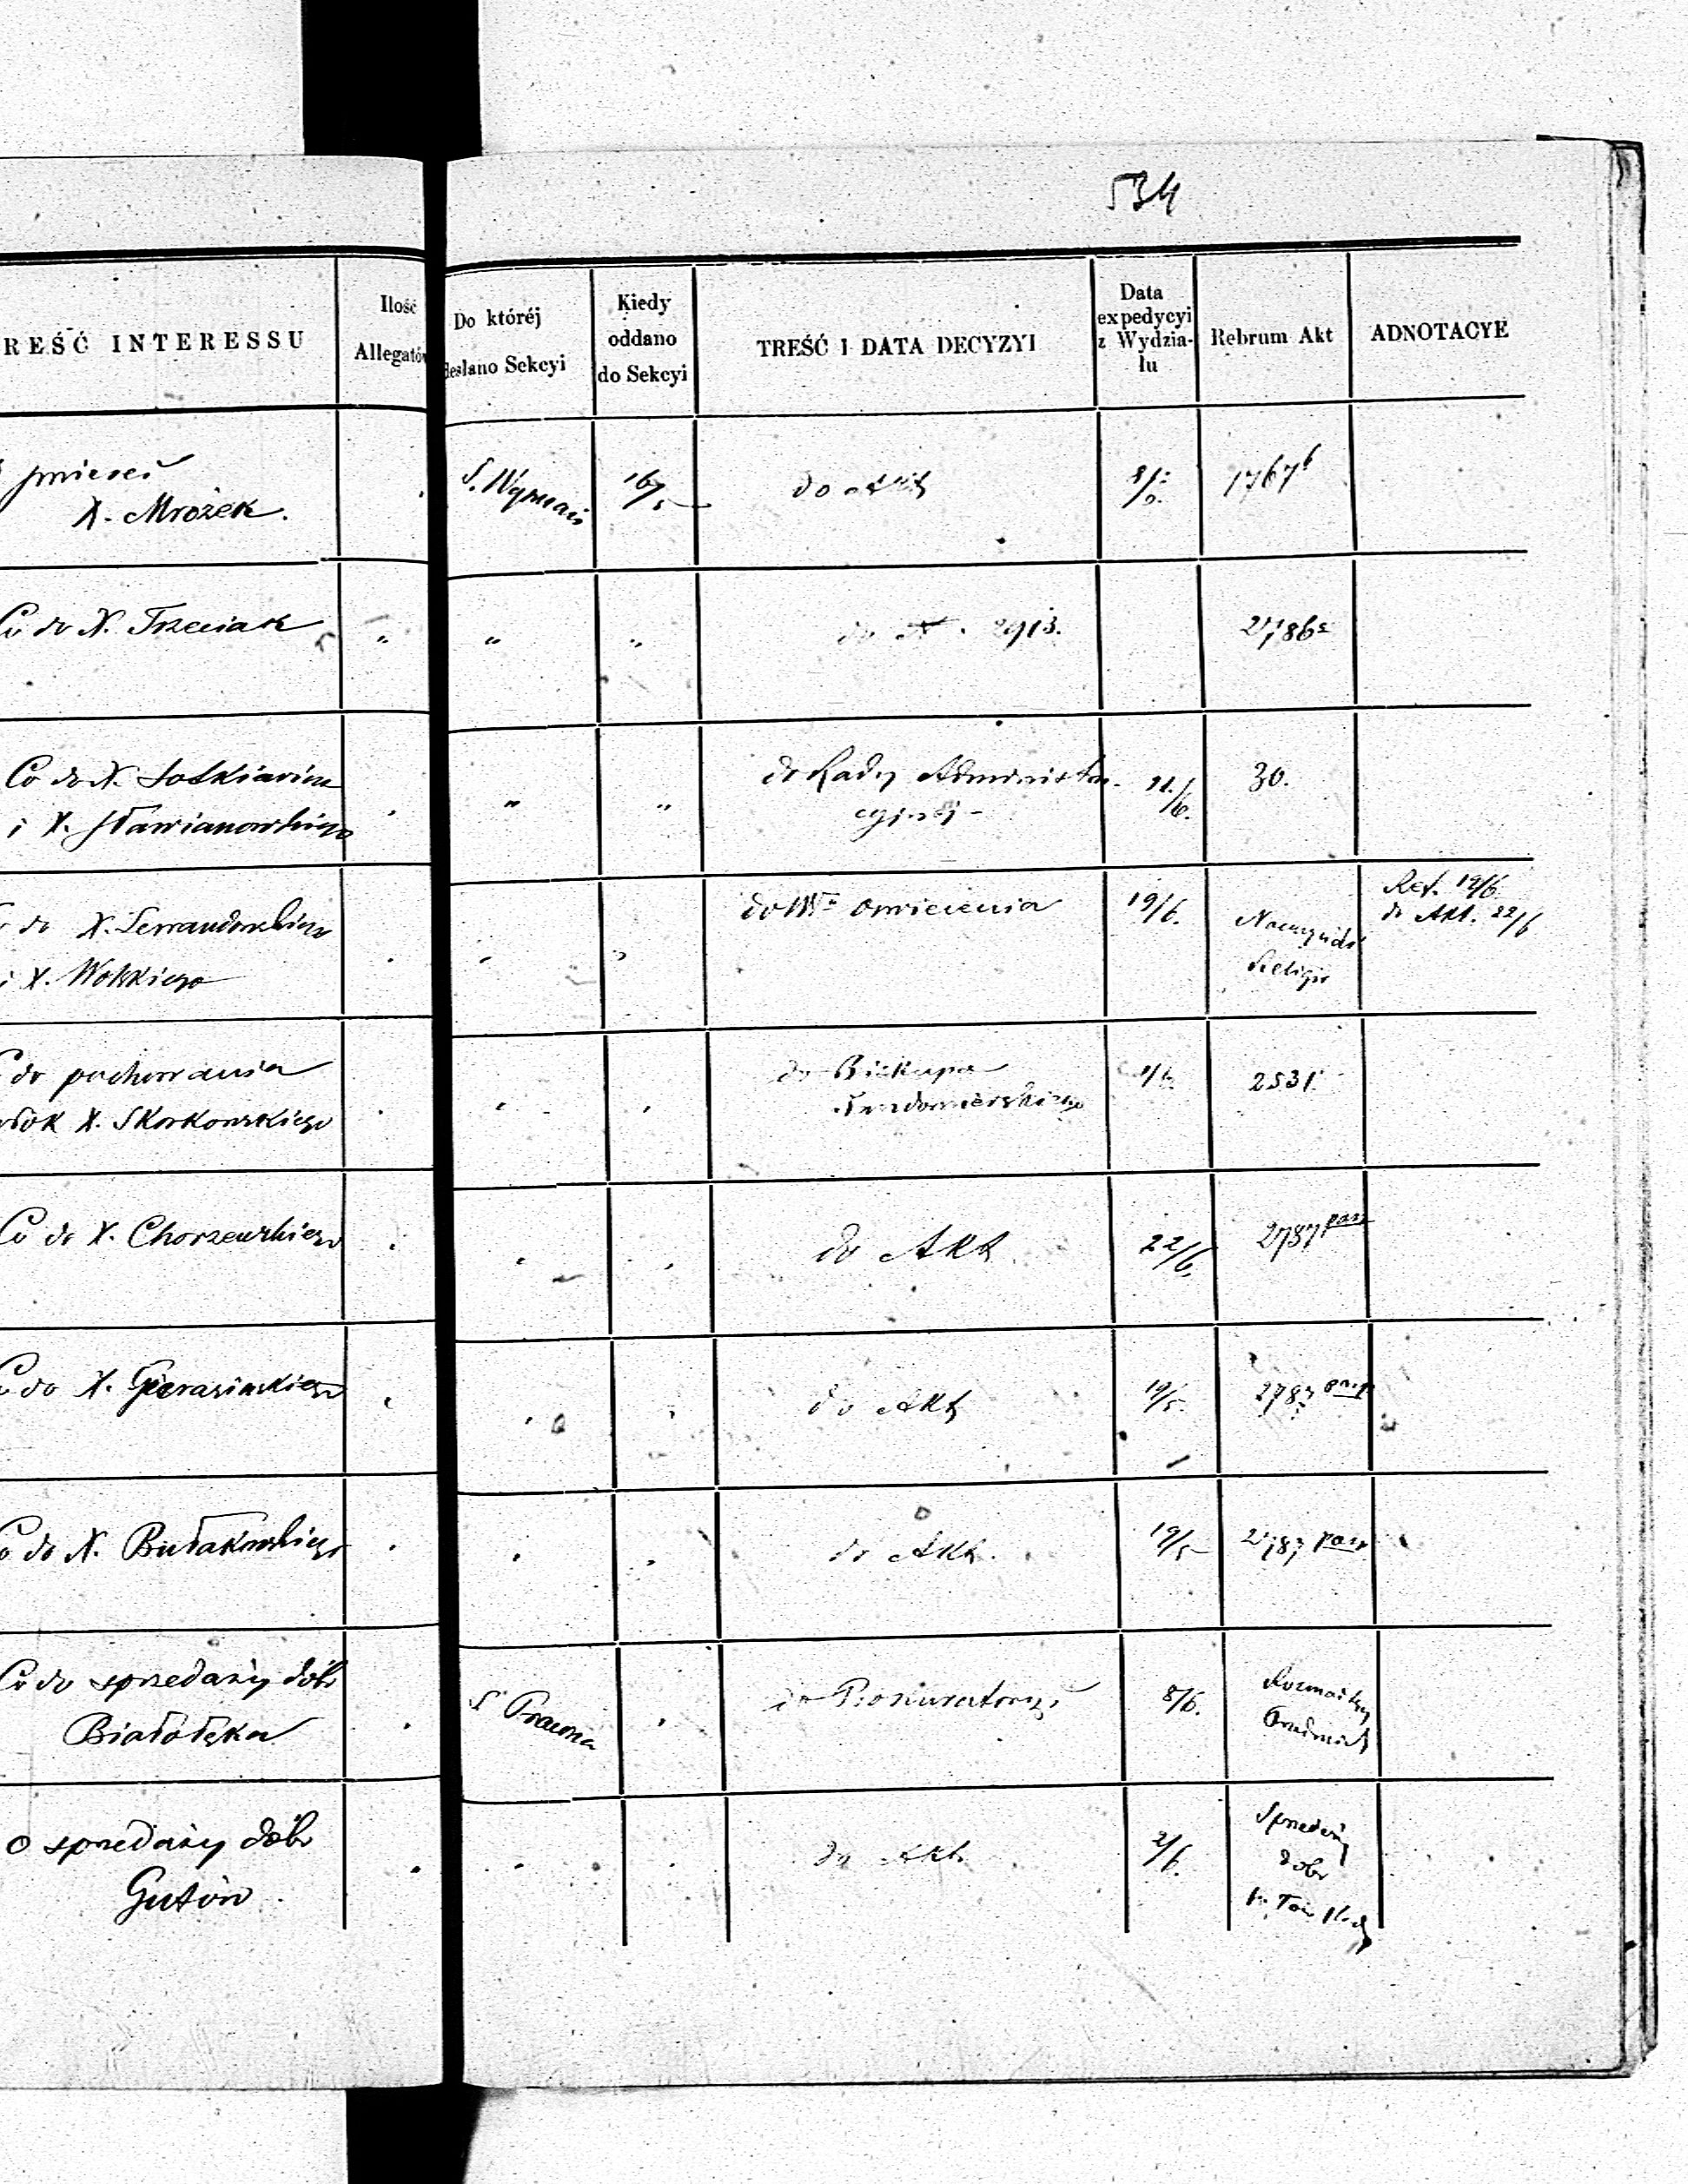 534
REŚĆ INTERESSU
Ilość
Allegatów
Do któréj
desłano Sekcyi
Kiedy
oddano
do Sekcyi
TREŚĆ I DATA DECYZYI
Data
expedycyi
z Wydzia-
łu
Rebrum Akt
ADNOTACYE
X. Mrożek.
S. Wyznań
16/5
do Akt
1767 b
Co do X. Trzeciak
"
"
"
do N. 2913.
2786
Co do X.
i X. Sławianowskiego
"
"
do Rady Administra-
cyjnej -
11/6.
30.
do X. Lewandowskiego
i X. Wolskiego
do Wła Oświecenia
19/6.
Religii
Ref. 19/6
do Akt. 22/6
do pochowania
zwłok X. Skorkowskiego
do Biskupa
Sandomierskiego
2531.
Co do X. Chorzewskiego
do Akt
22/6.
2787
Co do X. Gierasimskiego
do Akt
19/5.
2787
Co do X. Bułakowskiego
do Akt.
19/5
2787
Co do sprzedaży dóbr
Białołęka
S. Prawna
do Prokuratoryi
8/6.
Rozmaitych
o sprzedaży dóbr
Gutów
do Akt.
2/6.
Sprzedaży
dobr